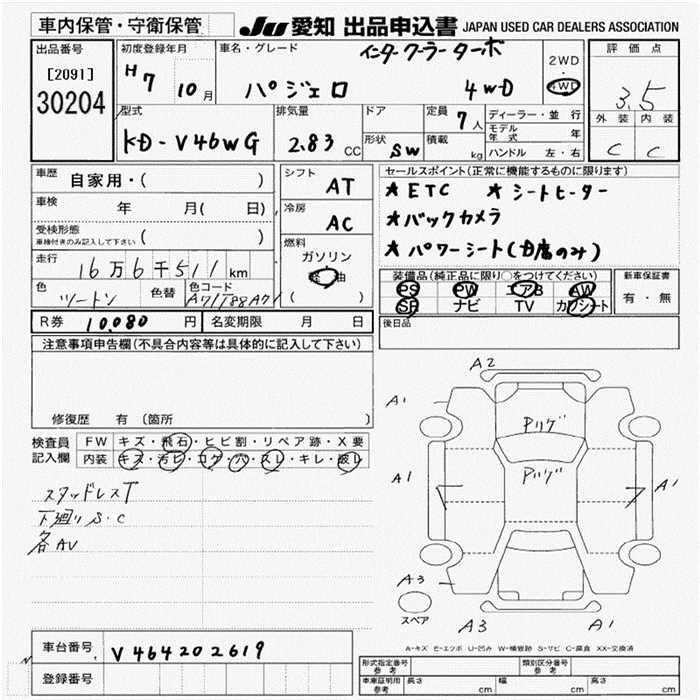 車内保管・守衛保管
JU 愛知 出品申込書 JAPAN USED CAR DEALERS ASSOCIATION
出品番号
[2091]
30204
初度登録年月
H7 10月
車名・グレード
インタークーラーターボ
パジェロ 4WD
2WD
・
4WD
評価点
3.5
外装 内装
C C
型式
KD-V46WG
排気量
2.83 CC
ドア
形状 SW
定員 7人
積載 kg
ディーラー・並行
モデル年式 年
ハンドル 左・右
車歴 自家用・( )
車検 年 月( 日)
受検形態
車検付きのみ記入して下さい ( )
走行 16万6千511km
色 ツートン 色替 色コード
シフト AT
冷房 AC
燃料
ガソリン
軽油
( )
セールスポイント(正常に機能するものに限ります)
★ETC ★シートヒーター
★バックカメラ
★パワーシート(のみ)
装備品(純正品に限り○をつけてください)
PS PW エアB AW
SR ナビ TV カワシート
新車保証書
有・無
後日品
R券 10,080円 名変期限 月 日
注意事項申告欄(不具合内容等は具体的に記入して下さい)
修復歴 有 (箇所 )
検査員記入欄
FW キズ・飛石・ヒビ割・リペア跡・X要
内装 キズ・汚ビ・コゲ・穴・スレ・キレ・破レ
スタッドレスT
下廻りS・C
各AV
A2
A1
Pハゲ
Pハゲ
A1
A1
A3
スペア
A3
A1
A-キズ E-エクボ U-凹み W-補修跡 S-サビ C-腐食 XX-交換済
車台番号 V464202619
登録番号
形式指定番号 参考
類別区分番号 参考
車庫証明用 参考 長さ cm 幅 cm 高さ cm